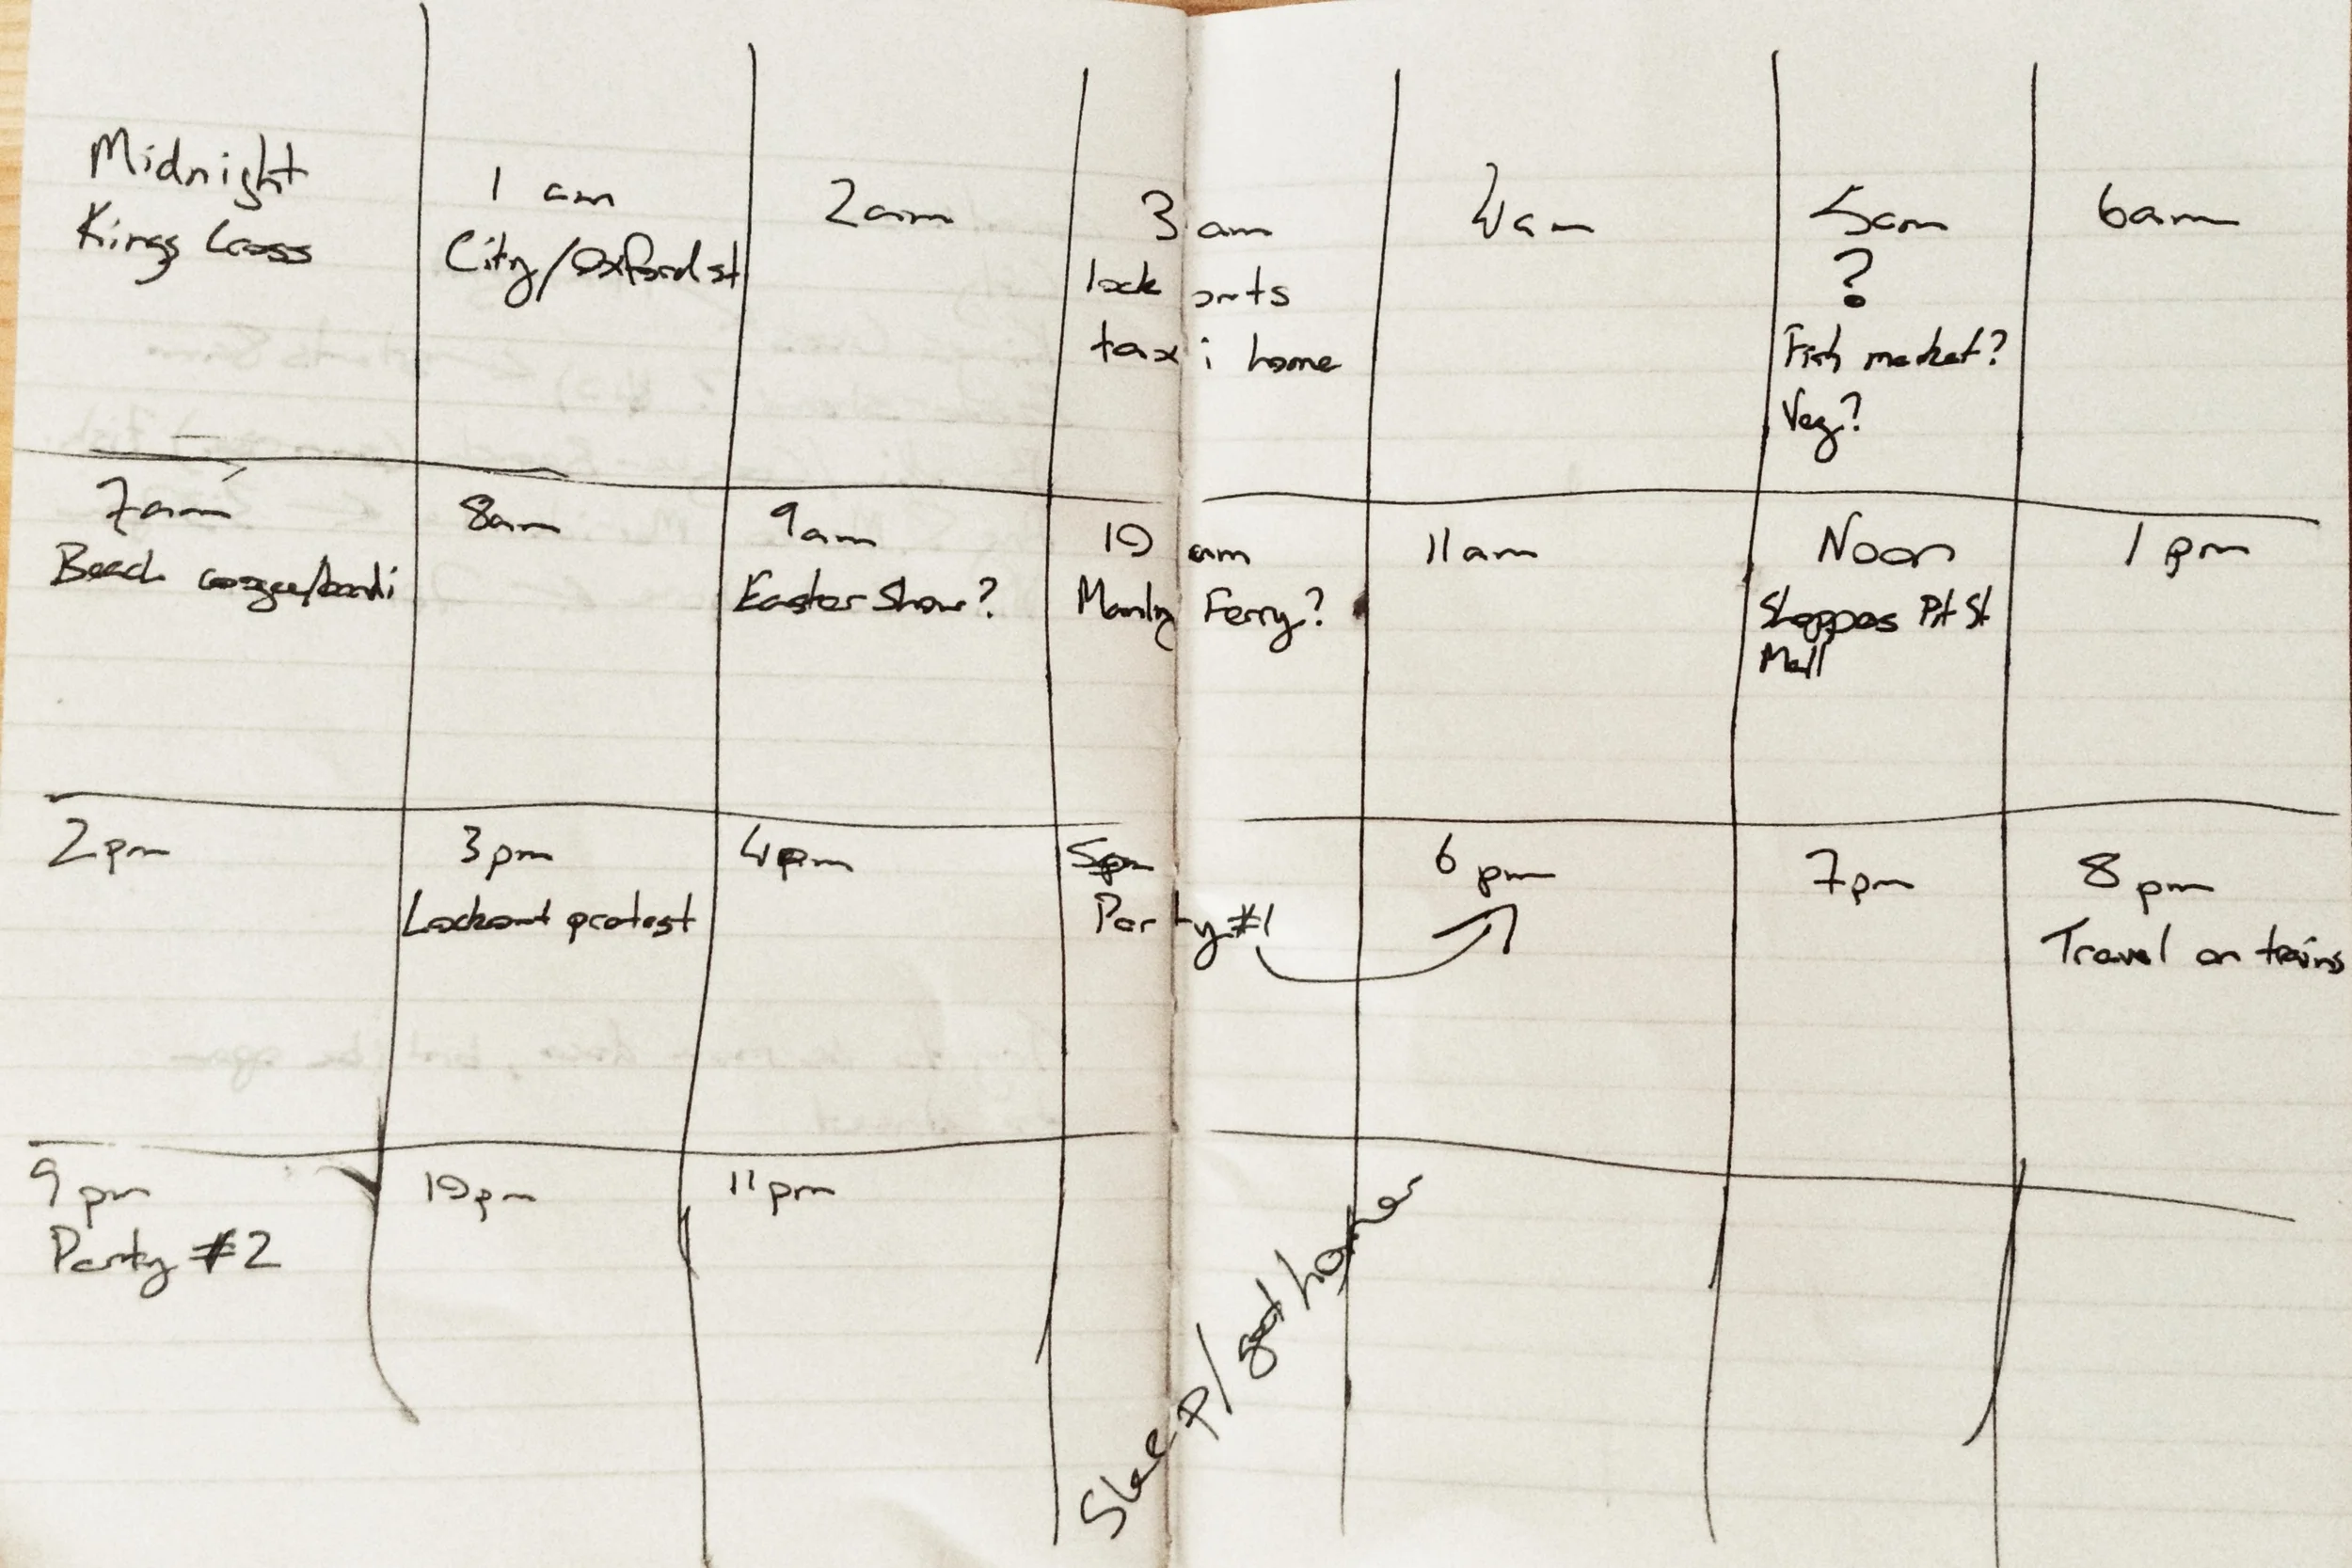 Midnight
Kings Cross
1 am
City/Oxford st
2am
3 am
lock outs
taxi home
4am
5am
?
Fish market?
Veg?
6am
7am
Beach coogee/bondi
8am
9am
Easter Show?
10 am
Manly Ferry?
11am
Noon
Shoppes Pit St
Mall
1 pm
2pm
3pm
Lockout protest
4pm
5pm
Party #1
6 pm
7pm
8 pm
Travel on trains
9 pm
Party #2
10pm
11pm
Sleep / got home